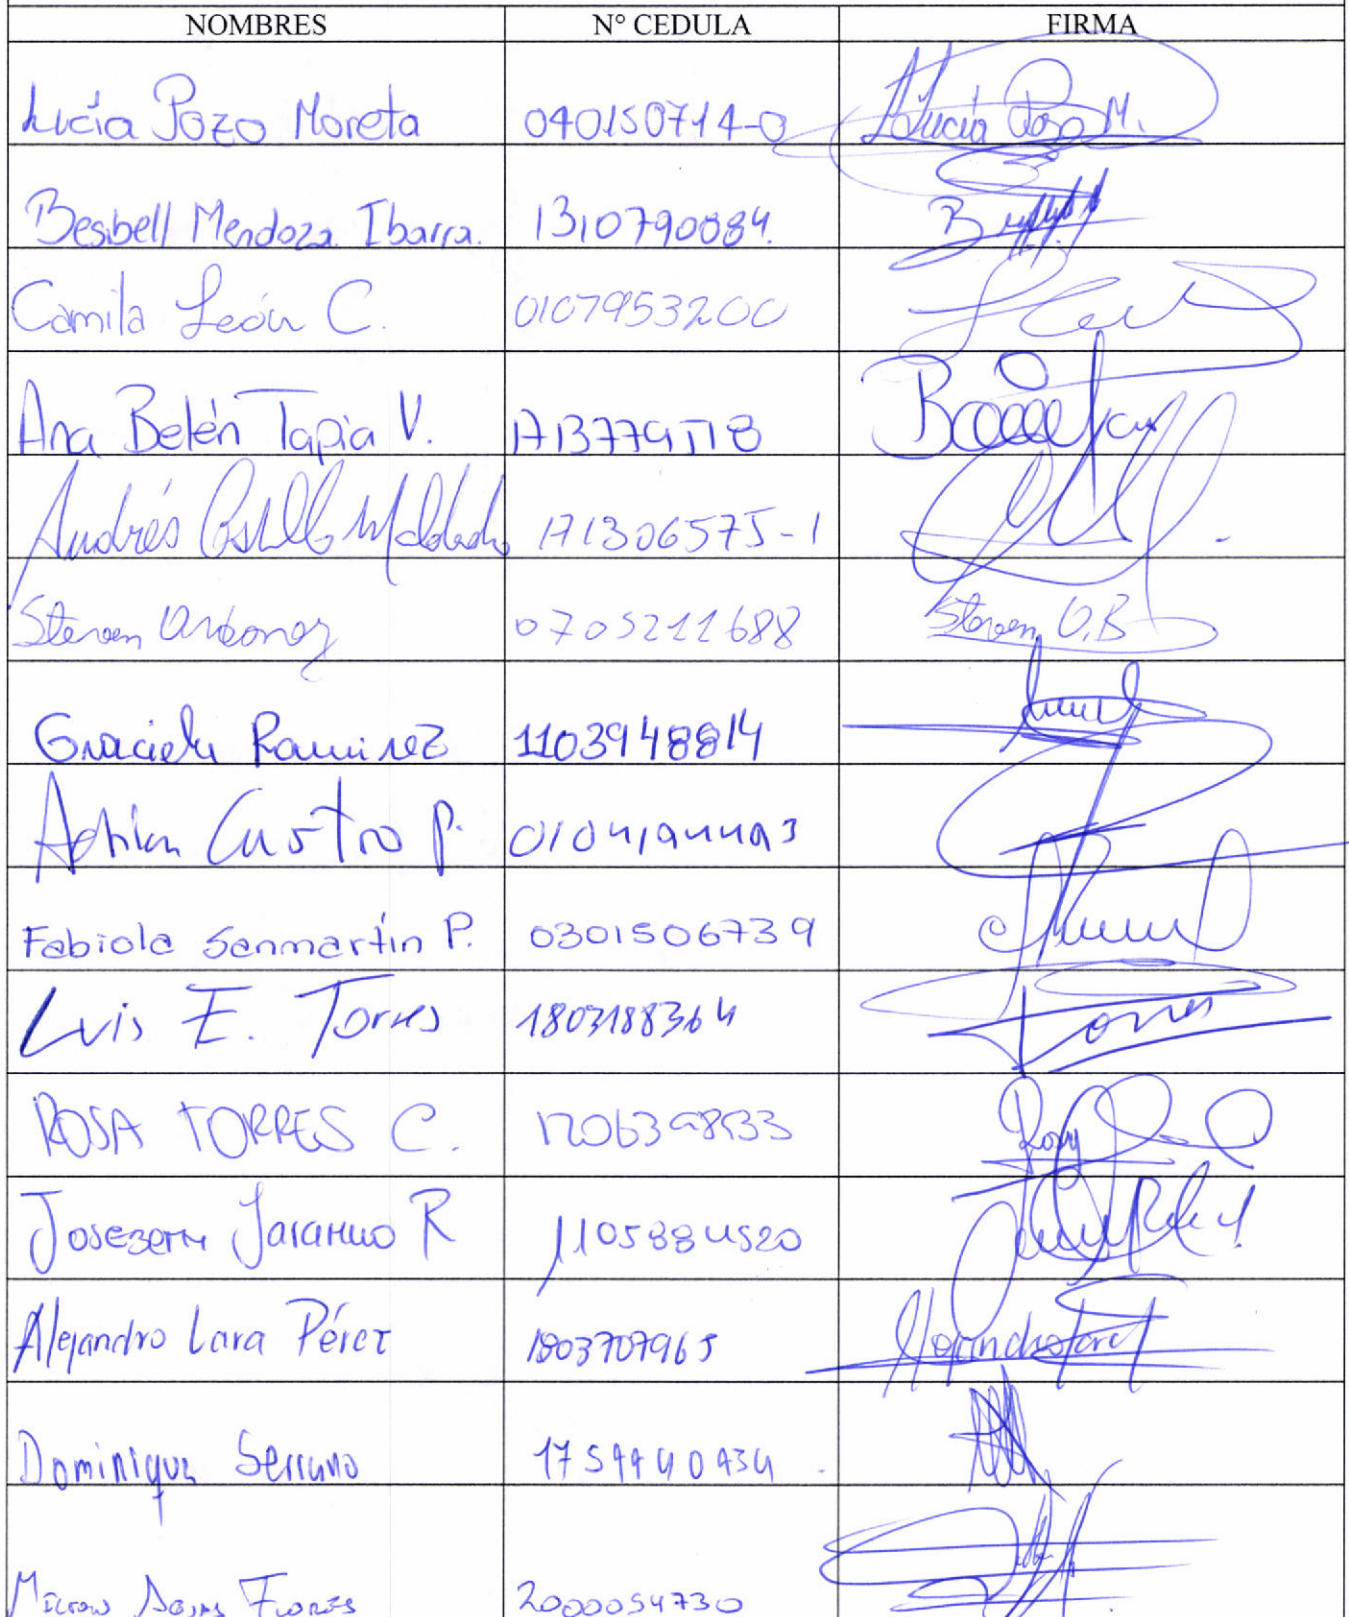 NOMBRES N° CEDULA FIRMA
Lucía Pozo Moreta 040150714-0 Lucía Pozo M.
Besbell Mendoza Ibarra. 1310790884.
Camila León C. 0107953200
Ana Belén Tapia V. 1713779118
Andrés Castillo Maldonado 171306575-1
Steven Ordonez 0705211688 Steven O.B
Graciela Ramirez 1103948814
Adrian Castro P.
Fabiola Sanmartín P. 0301506739
Luis E. Torres 1803188364 Torres
ROSA TORRES C. Rosy
Jaramillo R 1105884520
Alejandro Lara Pérez 1803707965 Alejandro Lara
Dominique Serrano
Flores 2000054730